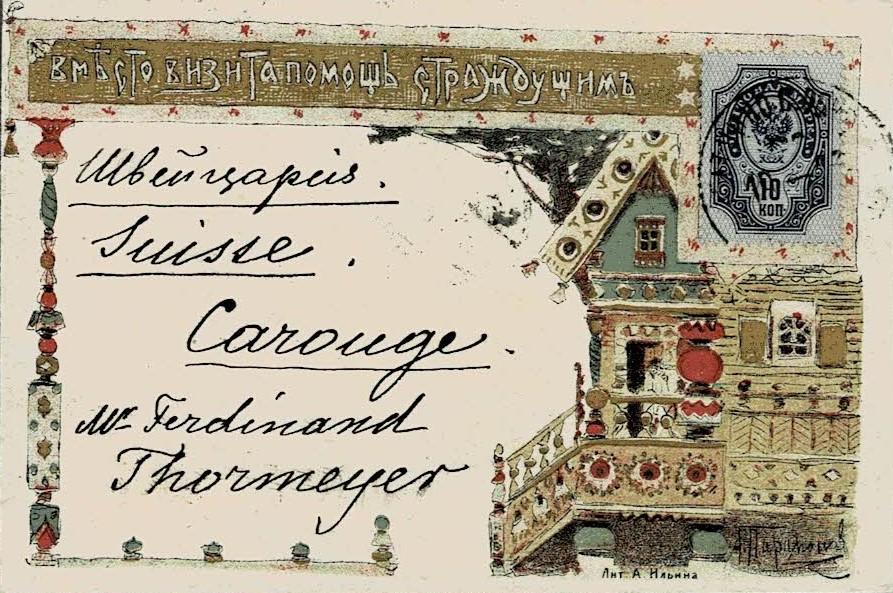 вмѣсто визита помощь страждущимъ
почтовая марка
10
коп
Швейцарія.
Suisse.
Carouge.
Mr Ferdinand
Thormeyer
Лит. А. Ильина